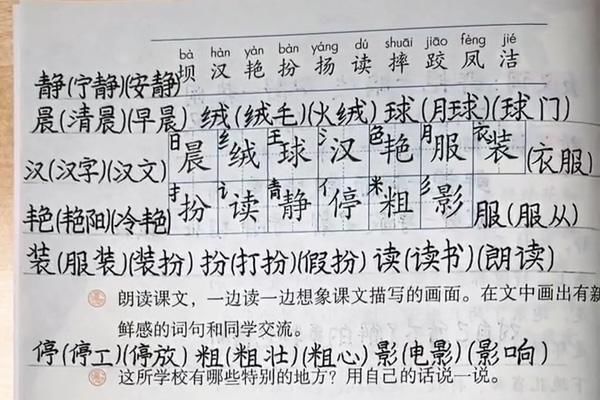 bà hàn yàn bàn yáng dú shuāi jiāo fèng jié
坝 汉 艳 扮 扬 读 摔 跤 凤 洁
静(宁静)(安静)
晨(清晨)(早晨) 绒(绒毛)(火绒) 球(月球)(球门)
日 纟 王 氵 色 月 衣
晨 绒 球 汉 艳 服 装
汉(汉字)(汉文) (衣服)
扌 讠 青 亻 米 彡
扮 读 静 停 粗 影
艳(艳阳)(冷艳) 服(服从)
装(服装)(装扮) 扮(打扮)(假扮) 读(读书)(朗读)
朗读课文，一边读一边想象课文描写的画面。在文中画出有新
鲜感的词句和同学交流。
停(停工)(停放) 粗(粗壮)(粗心) 影(电影)(影响)
这所学校有哪些特别的地方？用自己的话说一说。